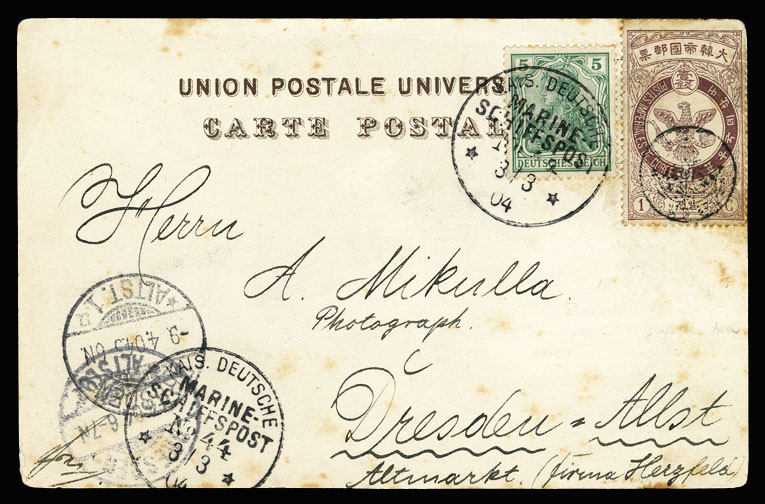 UNION POSTALE UNIVERS
CARTE POSTAL
5 5
DEUTSCHES REICH
大韓帝國郵票
1
KAIS. DEUTSCHE
MARINE-
SCHIFFSPOST
3/3
04
Herrn
A. Mikulla.
Photograph.
Dresden = Altst
Altmarkt. (firma Herzfeld)
ALTST. 1
KAIS. DEUTSCHE
MARINE-
SCHIFFSPOST
No 44
3/3
04